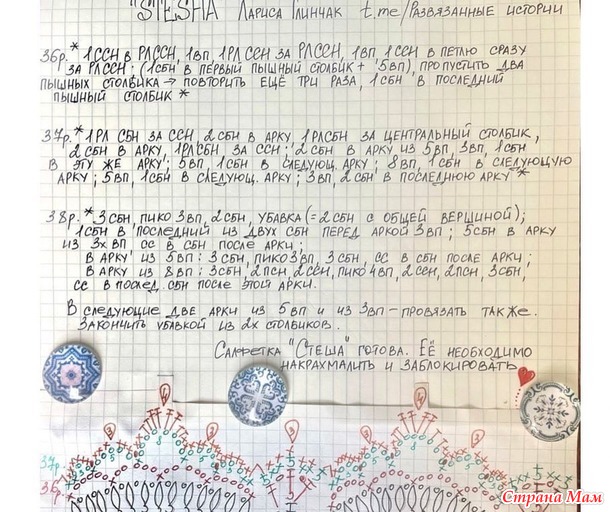 "STESHA Лариса Глинчак t.me/Развязанные истории
36р.* 1ССН в РЛССН, 1вп, 1РЛ ССН за РЛССН, 1вп 1ССН в петлю сразу
за РЛССН; (1сбн в первый пышный столбик + 5вп), пропустить два
пышных столбика → повторить ещё три раза, 1сбн в последний
пышный столбик *
37р.* 1РЛ СБН за ССН, 2сбн в арку, 1РЛСБН за центральный столбик,
2сбн в арку, 1РЛСБН за ССН; 2сбн в арку из 5вп, 3вп, 1сбн
в эту же арку; 5вп, 1сбн в следующ. арку; 8вп, 1сбн в следующую
арку; 5вп, 1сбн в следующ. арку; 3вп, 2сбн в последнюю арку *
38р.* 3сбн, пико 3вп, 2сбн, убавка (=2сбн с общей вершиной);
1сбн в последний из двух сбн перед аркой 3вп; 5сбн в арку
из 3х вп сс в сбн после арки;
в арку из 5вп: 3сбн, пико 3вп, 3сбн, сс в сбн после арки;
в арку из 8вп: 3сбн, 2псн, 2ссн, пико 4вп, 2ссн, 2псн, 3сбн,
сс в послед. сбн после этой арки.
В следующие две арки из 5вп и из 3вп - провязать также.
Закончить убавкой из 2х столбиков.
Салфетка "Стеша" готова. Её необходимо
накрахмалить и заблокировать
37р.
36р.
Страна Мам